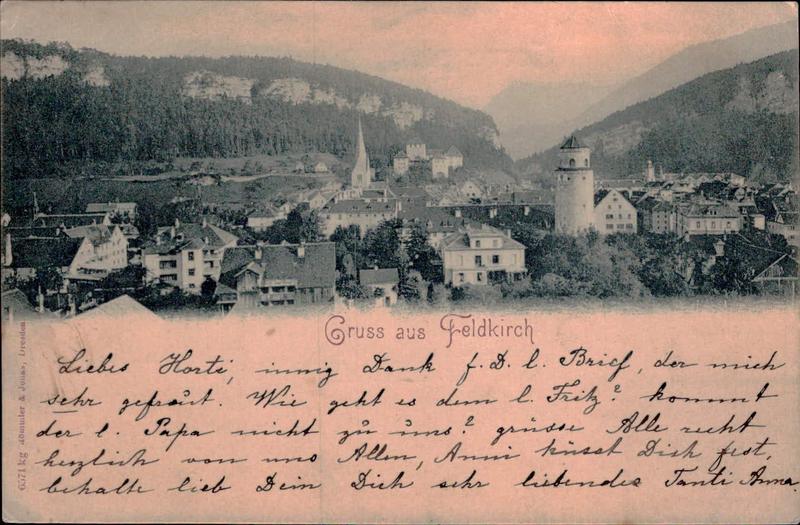 Gruss aus Feldkirch
Liebes Horti, innig Dank f. D. l. Brief, der mich
sehr gefreut. Wie geht es dem l. Fritz? kommt
der l. Papa nicht zu uns? grüsse Alle recht
herzlich von uns Allen, Anni küsst Dich fest,
behalte lieb Dein Dich sehr liebendes Tanti Anna.
6571 kg Römmler & Jonas, Dresden